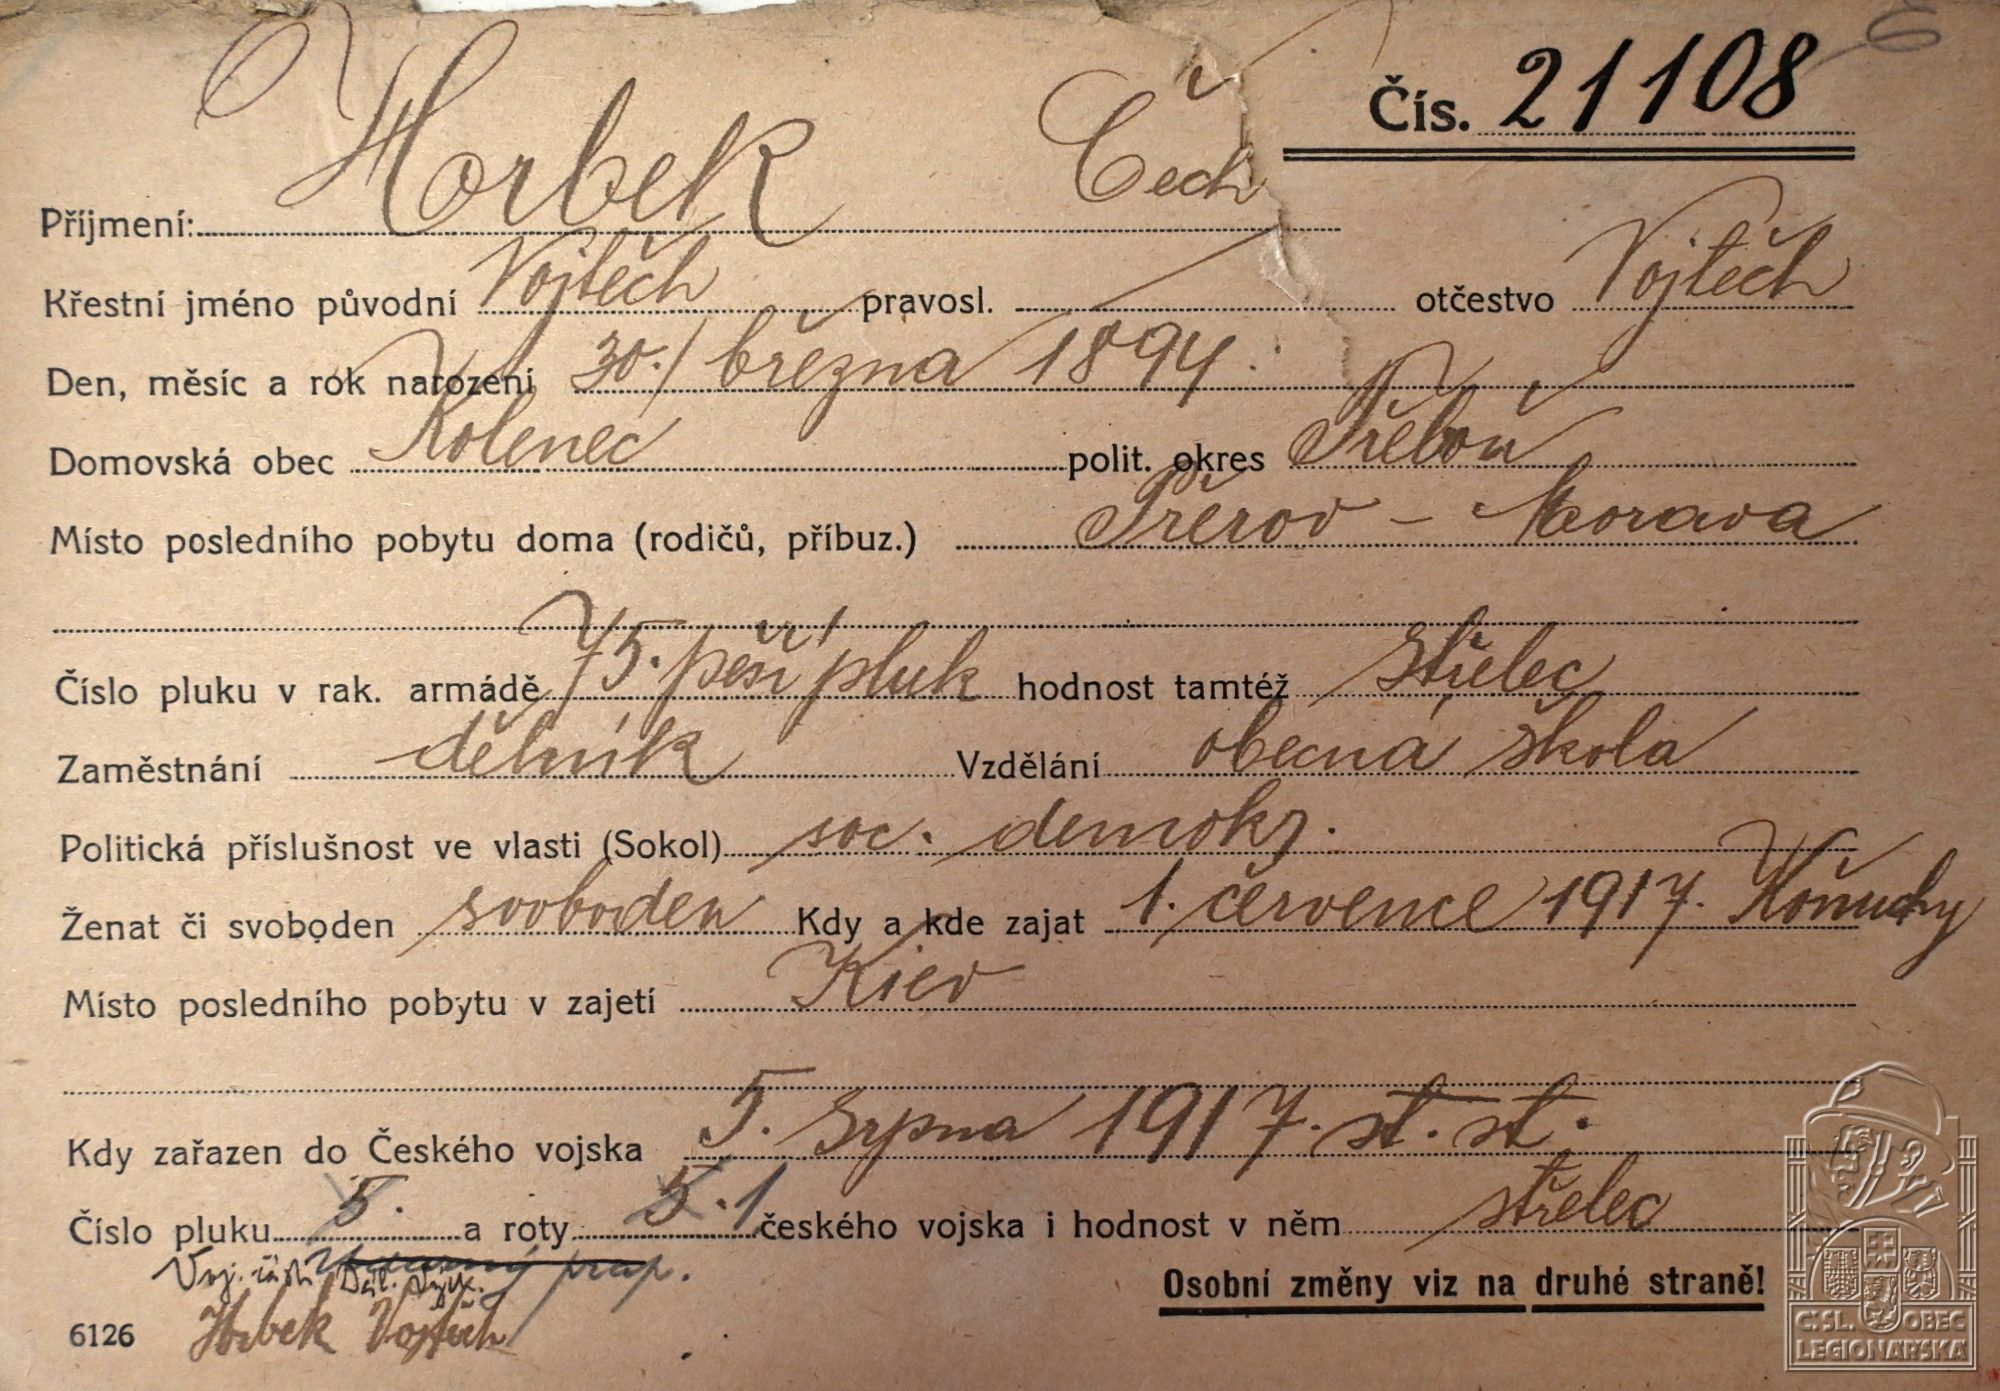 Čís. 21108
Příjmení: Horbek Čech
Křestní jméno původní Vojtěch pravosl. — otčestvo Vojtěch
Den, měsíc a rok narození 30./března 1894.
Domovská obec Kolenec polit. okres Třeboň
Místo posledního pobytu doma (rodičů, příbuz.) Přerov - Morava
Číslo pluku v rak. armádě 75. pěší pluk hodnost tamtéž střelec
Zaměstnání dělník Vzdělání obecná škola
Politická příslušnost ve vlasti (Sokol) soc. demokr.
Ženat či svoboden svoboden Kdy a kde zajat 1. července 1917. Koňuchy
Místo posledního pobytu v zajetí Kiev
Kdy zařazen do Českého vojska 5. srpna 1917. st. st.
Číslo pluku 5. a roty 5. 1 českého vojska i hodnost v něm střelec
Voj. část prap.
Osobní změny viz na druhé straně!
6126 Hrbek Vojtěch
Č.SL. OBEC
LEGIONÁŘSKÁ